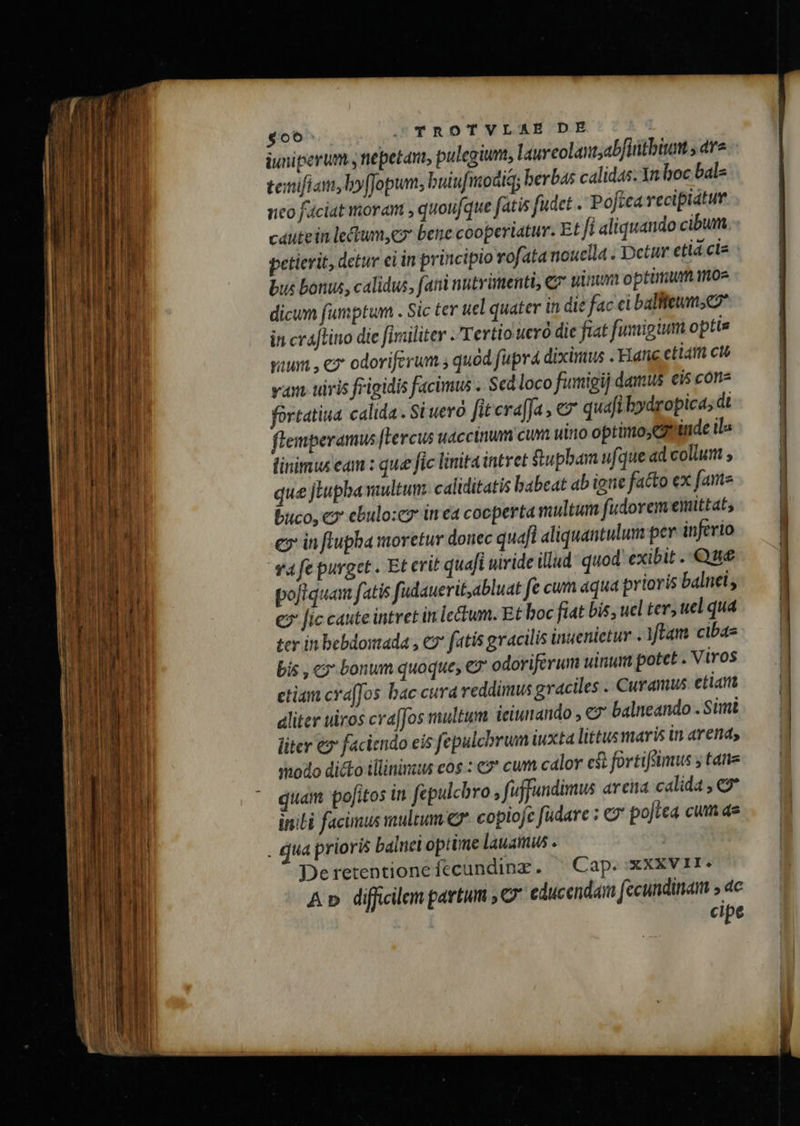 500 TROTVLAE DE
iuniperum, nepetam, pulegium, laureolam, abſinthium, are⸗
temiſiam, hyſſopum, huiuſmodiq; herbas calidas. In hoc bal⸗
neo faciat moram, quouſque ſatis ſudet. Poſtea recipiatur
caute in lectum, & bene cooperiatur. Et ſi aliquando cibum
petierit, detur ei in principio roſata nouella. Detur etiā ci⸗
bus bonus, calidus, ſani nutrimenti, & uinum optimum mo⸗
dicum ſumptum. Sic ter uel quater in die fac ei balneum, &
in craſtino die ſimiliter. Tertio uerò die fiat fumigium opti⸗
mum, & odoriferum, quòd ſuprà diximus. Hanc etiam cu
ram uiris frigidis facimus. Sed loco fumigij damus eis con⸗
fortatiua calida. Si uerò ſit craſſa, & quaſi hydropica, di
ſtemperamus ſtercus uaccinum cum uino optimo, & inde il⸗
linimus eam: que ſic linita intret ſtupham uſque ad collum,
que ſtupha multum caliditatis habeat ab igne facto ex ſam⸗
buco, & ebulo: & in ea cooperta multum ſudorem emittat,
& in ſtupha moretur donec quaſi aliquantulum per inferio
ra ſe purget. Et erit quaſi uiride illud quod exibit. Que
poſtquam ſatis ſudauerit, abluat ſe cum aqua prioris balnei,
& ſic caute intret in lectum. Et hoc fiat bis, uel ter, uel qua
ter in hebdomada, & ſatis gracilis inuenietur. Iſtam ciba⸗
bis, & bonum quoque, & odoriferum uinum potet. Viros
etiam craſſos hac cura reddimus graciles. Curamus etiam
aliter uiros craſſos multum ieiunando, & balneando. Simi
liter & faciendo eis ſepulchrum iuxta littus maris in arena,
modo dicto illinimus eos: & cum calor eſt fortiſsimus, tan⸗
quam poſitos in ſepulchro, ſuffundimus arena calida, &
inibi facimus multum & copioſe ſudare: & poſtea cum a⸗
qua prioris balnei optime lauamus.
De retentione ſecundinæ. Cap. XXXVII.
AD difficilem partum, & educendam ſecundinam, ac
cipe